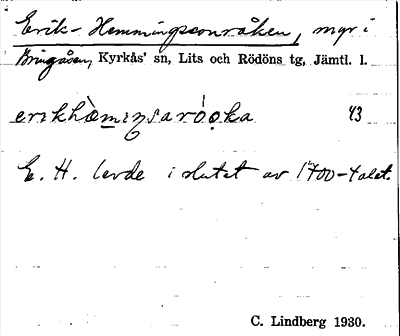 Erik-Hemmingsonråken, myr i
Bringåsen, Kyrkås' sn, Lits och Rödöns tg, Jämtl. l.
erikhòmiŋsaróọka 43
E. H. levde i slutet av 1700-talet.
C. Lindberg 1930.